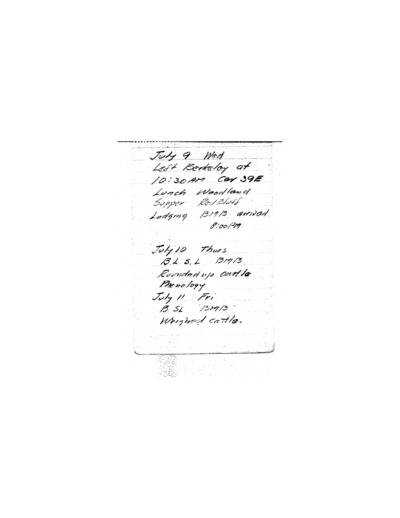 July 9 Wed
Left Berkeley at
10:30 AM Car 39E
Lunch Woodland
Supper Red Bluff
Lodging BMB arrived
8:00 PM
July 10 Thurs
B. L. S. L BMB
Rounded up cattle
Phenology
July 11 Fri
B. SL BMB
Weighed cattle.